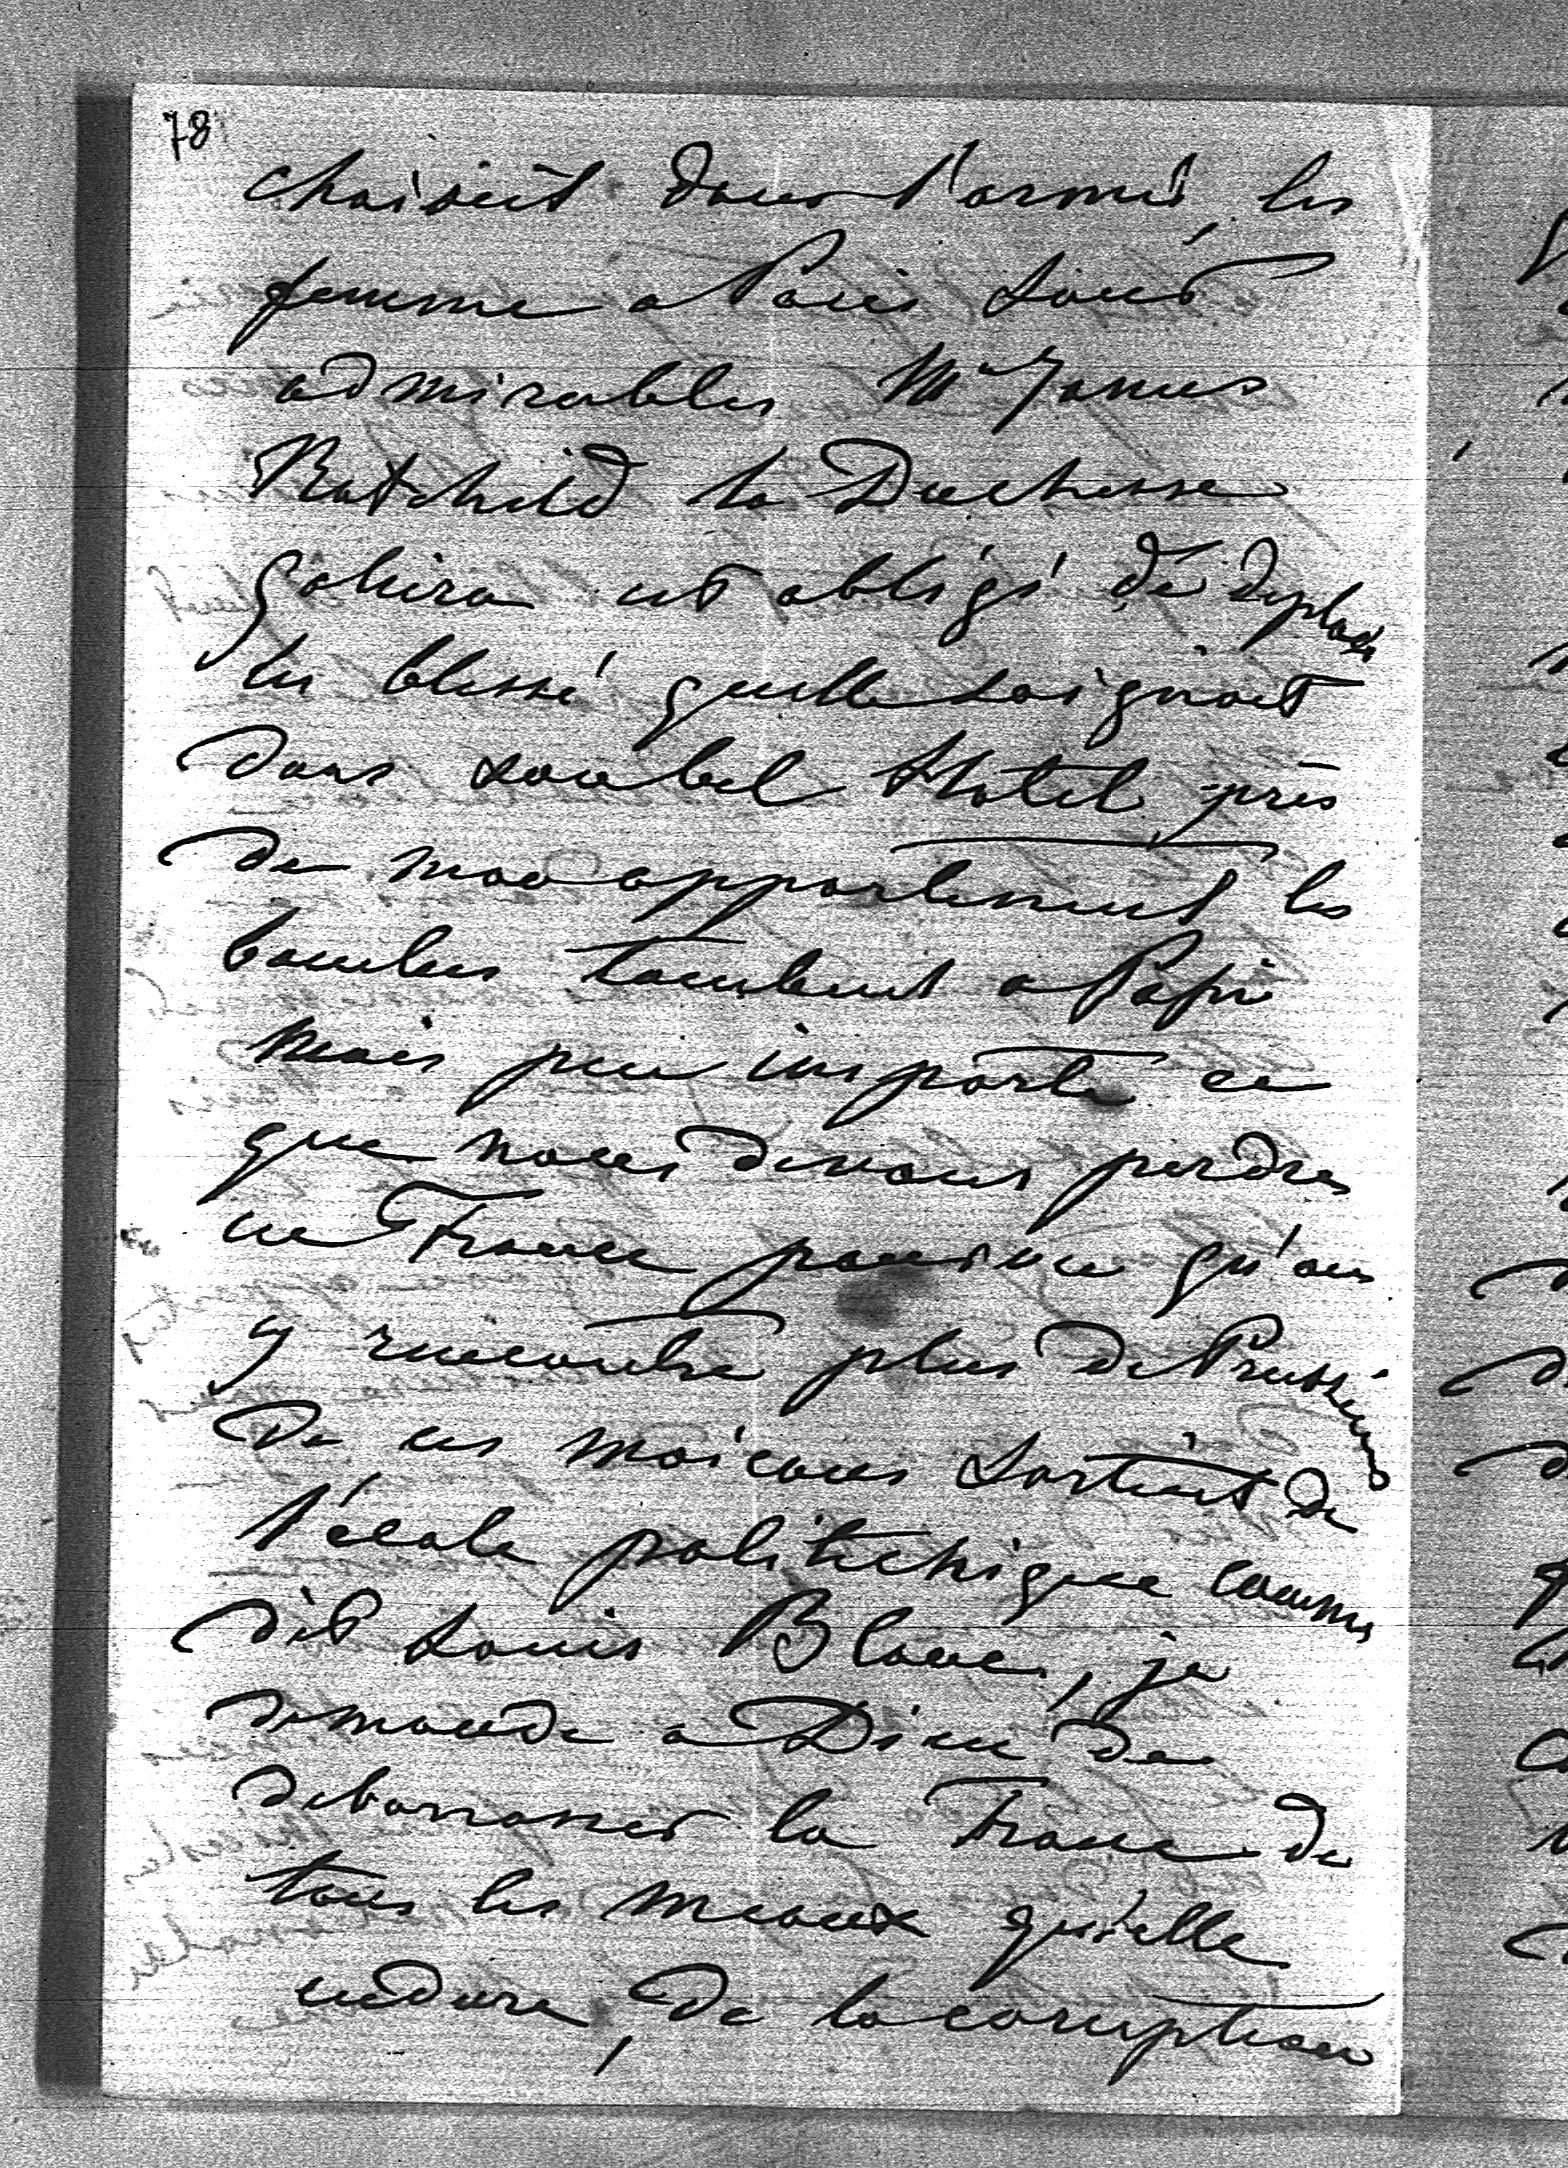 78
choisiût dans l'armé, les
femme a Paris sont
admirables Mr James
Rotchild la Duchesse
Galiera est obligé de deplacer
les blessé quelle soignoit
dans son bel Hotel près
de mon appartement les
bombes tombent a
mais peu importe ce
que nous devons perdre
en France pourvu qu'on
y rencontre plus de Prussiens
De ces moicous sortint de
l'école politechique comme
dit Louis Blanc, je
demande a Dieu de
debarrasser la France de
tous les meaux qu'elle
endure, De la coruption